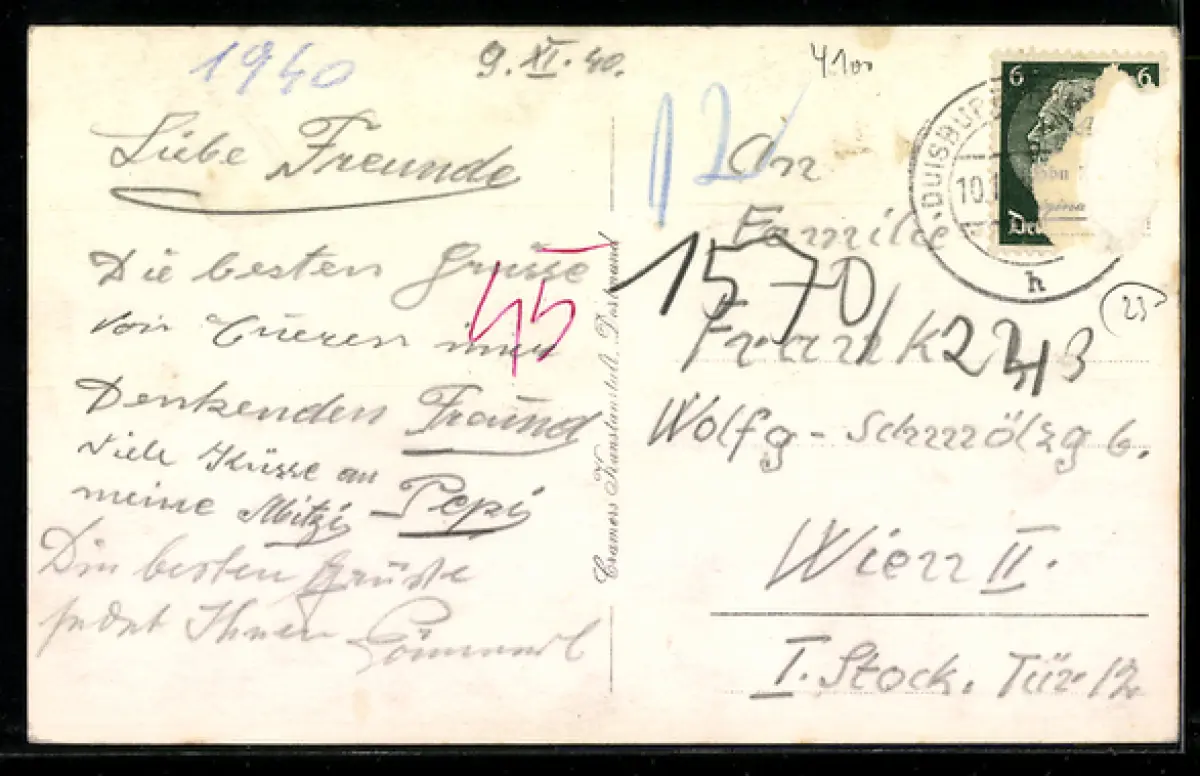 1940
9. XI. 40.
4100
Liebe Freunde
Die besten Grüsse
von Eueren immer
Denkenden Freund
Viele Küsse an Pepi
meine Mitzi
Die besten Grüße
sendet Ihnen
45
12
An
Familie
1570/
Frank
2243
Wolfg-Schmölzg 6.
Wien II.
I. Stock. Tür 12
Cramers Kunstanstalt, Dortmund
6 6
DUISBURG
10.1
h
23